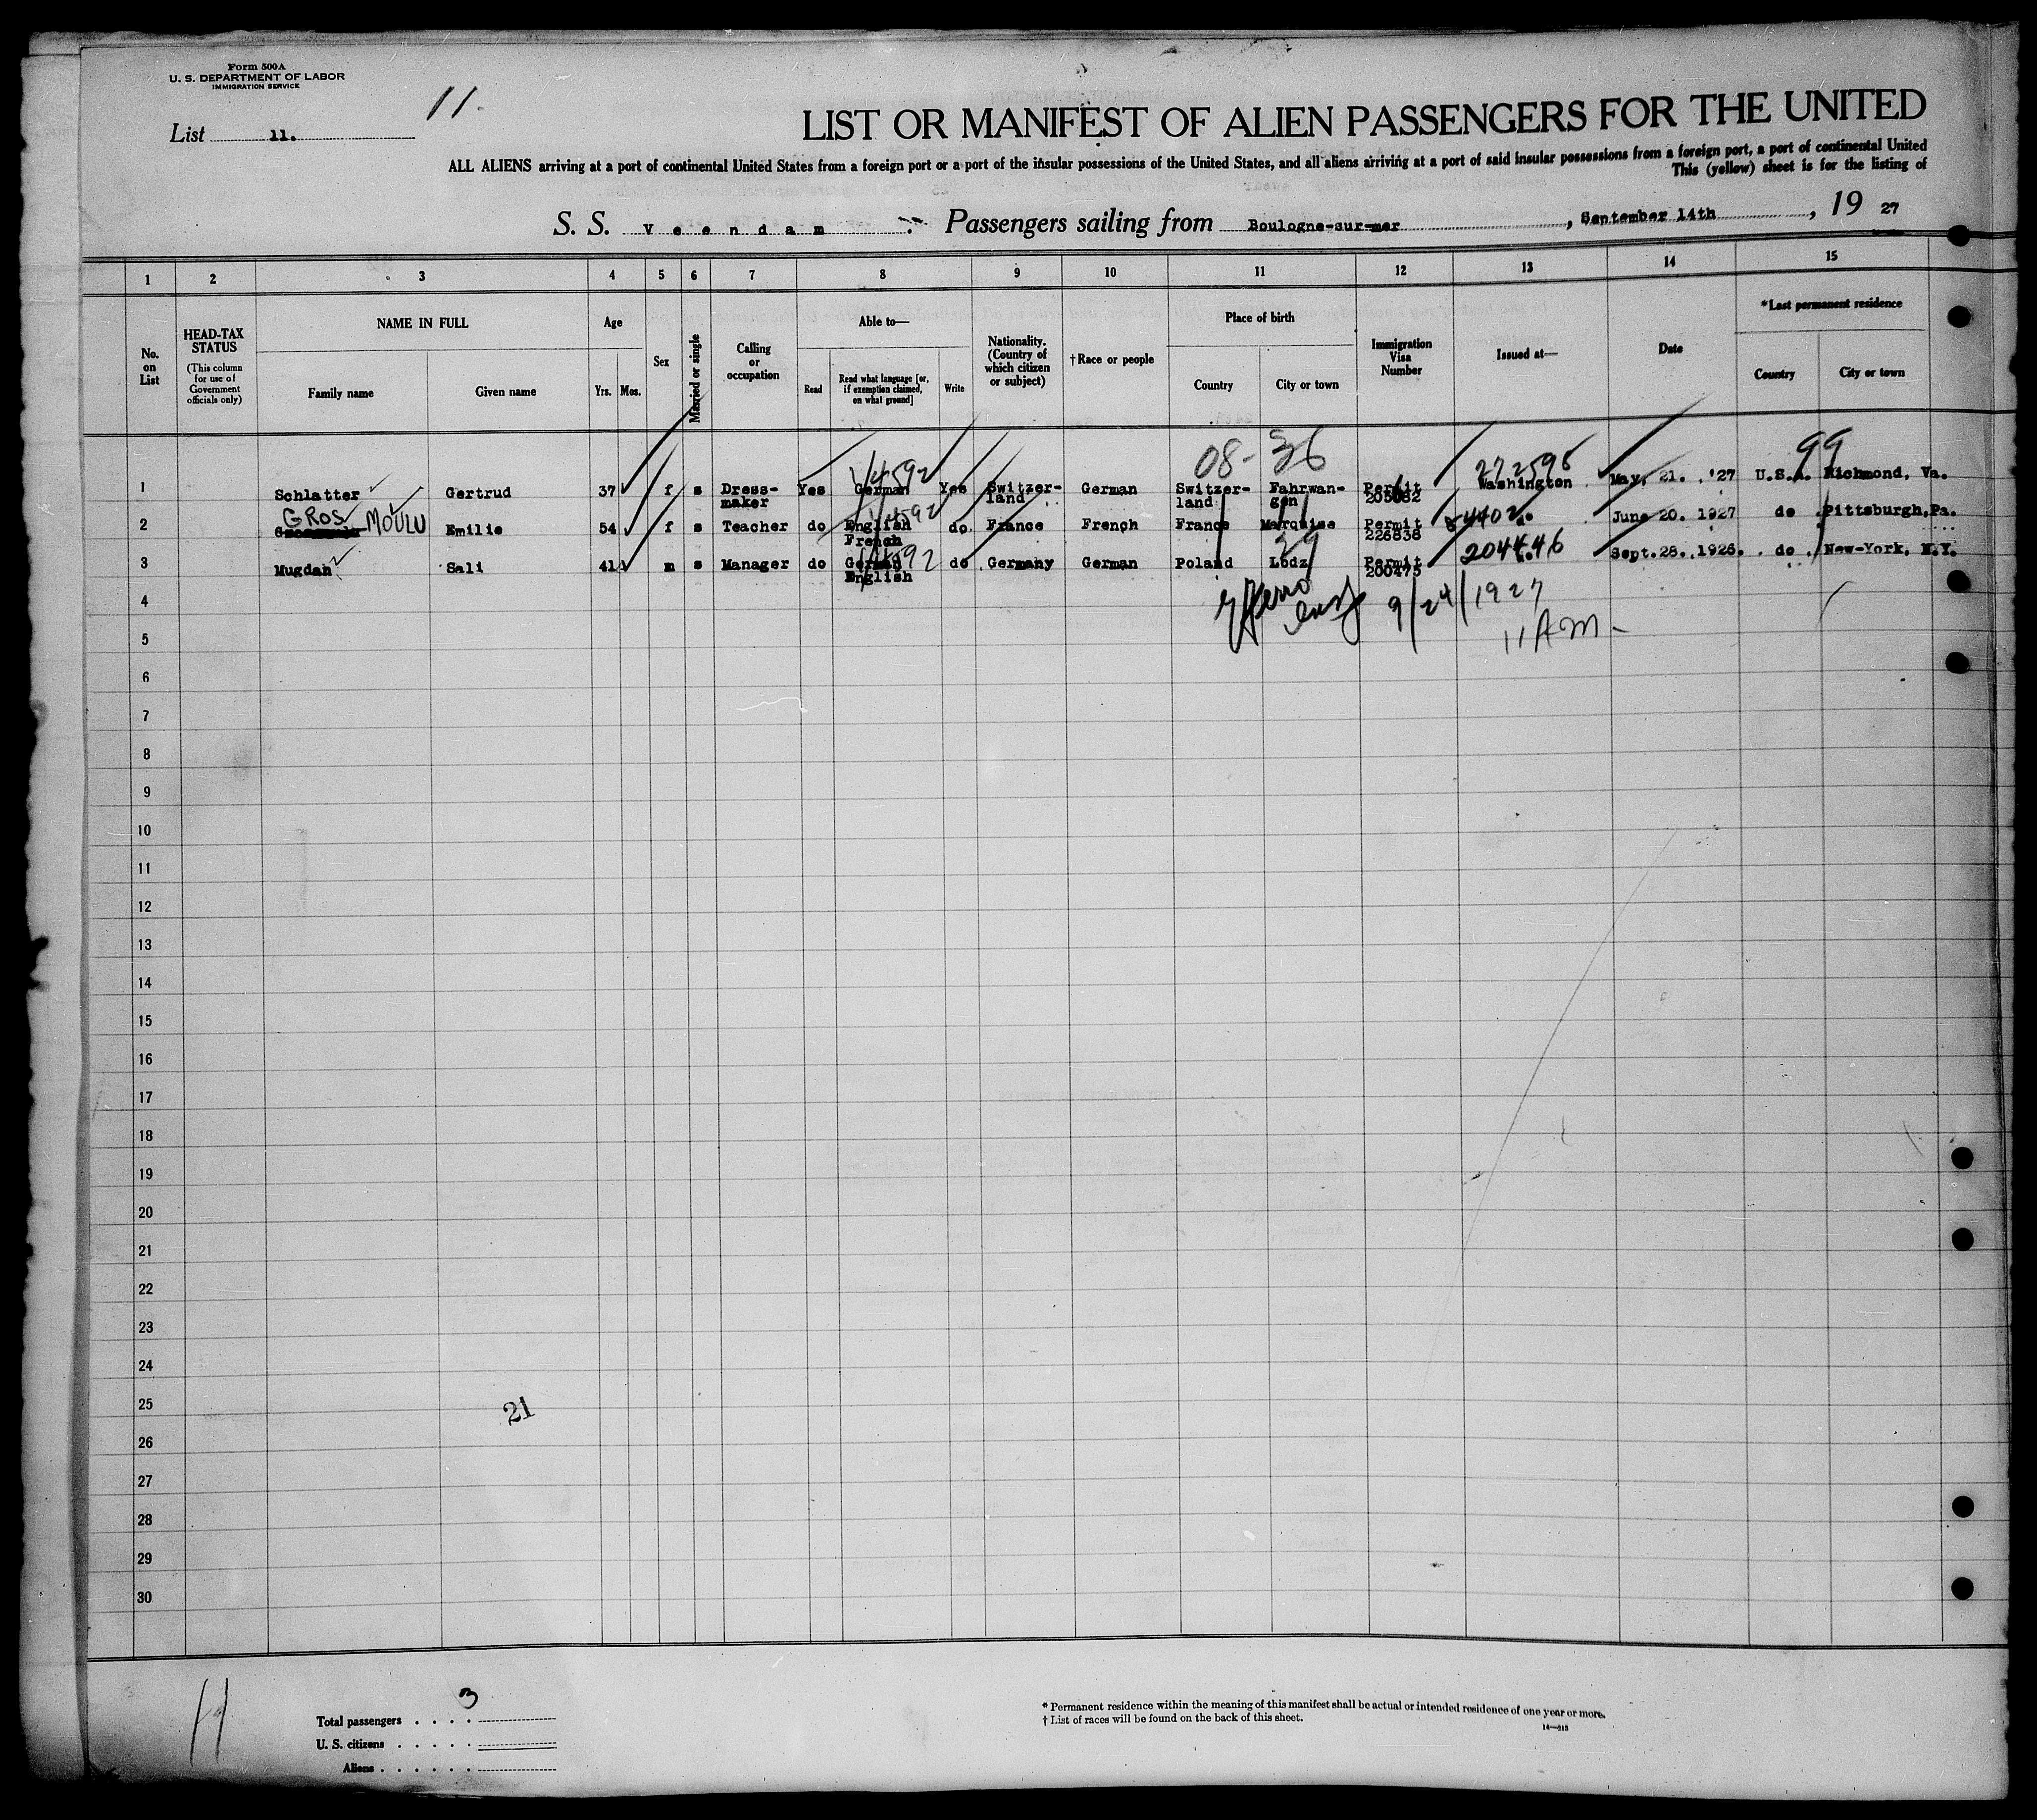 Form 500A
U. S. DEPARTMENT OF LABOR
IMMIGRATION SERVICE
11.
List 11.
LIST OR MANIFEST OF ALIEN PASSENGERS FOR THE UNITED
ALL ALIENS arriving at a port of continental United States from a foreign port or a port of the insular possessions of the United States, and all aliens arriving at a port of said insular possessions from a foreign port, a port of continental United
This (yellow) sheet is for the listing of
S. S. Veendam. Passengers sailing from Boulogne-sur-mer, September 14th, 19 27
1 2 3 4 5 6 7 8 9 10 11 12 13 14 15
No. on List
HEAD-TAX STATUS
(This column for use of Government officials only)
NAME IN FULL
Family name Given name
Age
Yrs. Mos.
Sex
Married or single
Calling or occupation
Able to—
Read Read what language [or, if exemption claimed, on what ground] Write
Nationality. (Country of which citizen or subject)
†Race or people
Place of birth
Country City or town
Immigration Visa Number
Issued at—
Date
*Last permanent residence
Country City or town
08-36 99
14592 272596
1 Schlatter Gertrud 37 f s Dress-maker Yes German Yes Switzer-land German Switzer-land Fahrwan-gen Permit Washington May, 21. '27 U.S.A. Richmond, Va.
GROS MOULU 14592
2 Emilie 54 f s Teacher do English French do France French France Marquise Permit 226838 June 20. 1927 do Pittsburgh, Pa.
3 Mugdan Sali 41 m s Manager do German English do Germany German Poland Lodz Permit 200475 204446 Sept. 28. 1926. do New-York, N.Y.
4
9/24/1927
5
11 AM-
6
7
8
9
10
11
12
13
14
15
16
17
18
19
20
21
22
23
24
25
21
26
27
28
29
30
11
3
Total passengers
U. S. citizens
Aliens
* Permanent residence within the meaning of this manifest shall be actual or intended residence of one year or more.
† List of races will be found on the back of this sheet.
14—213